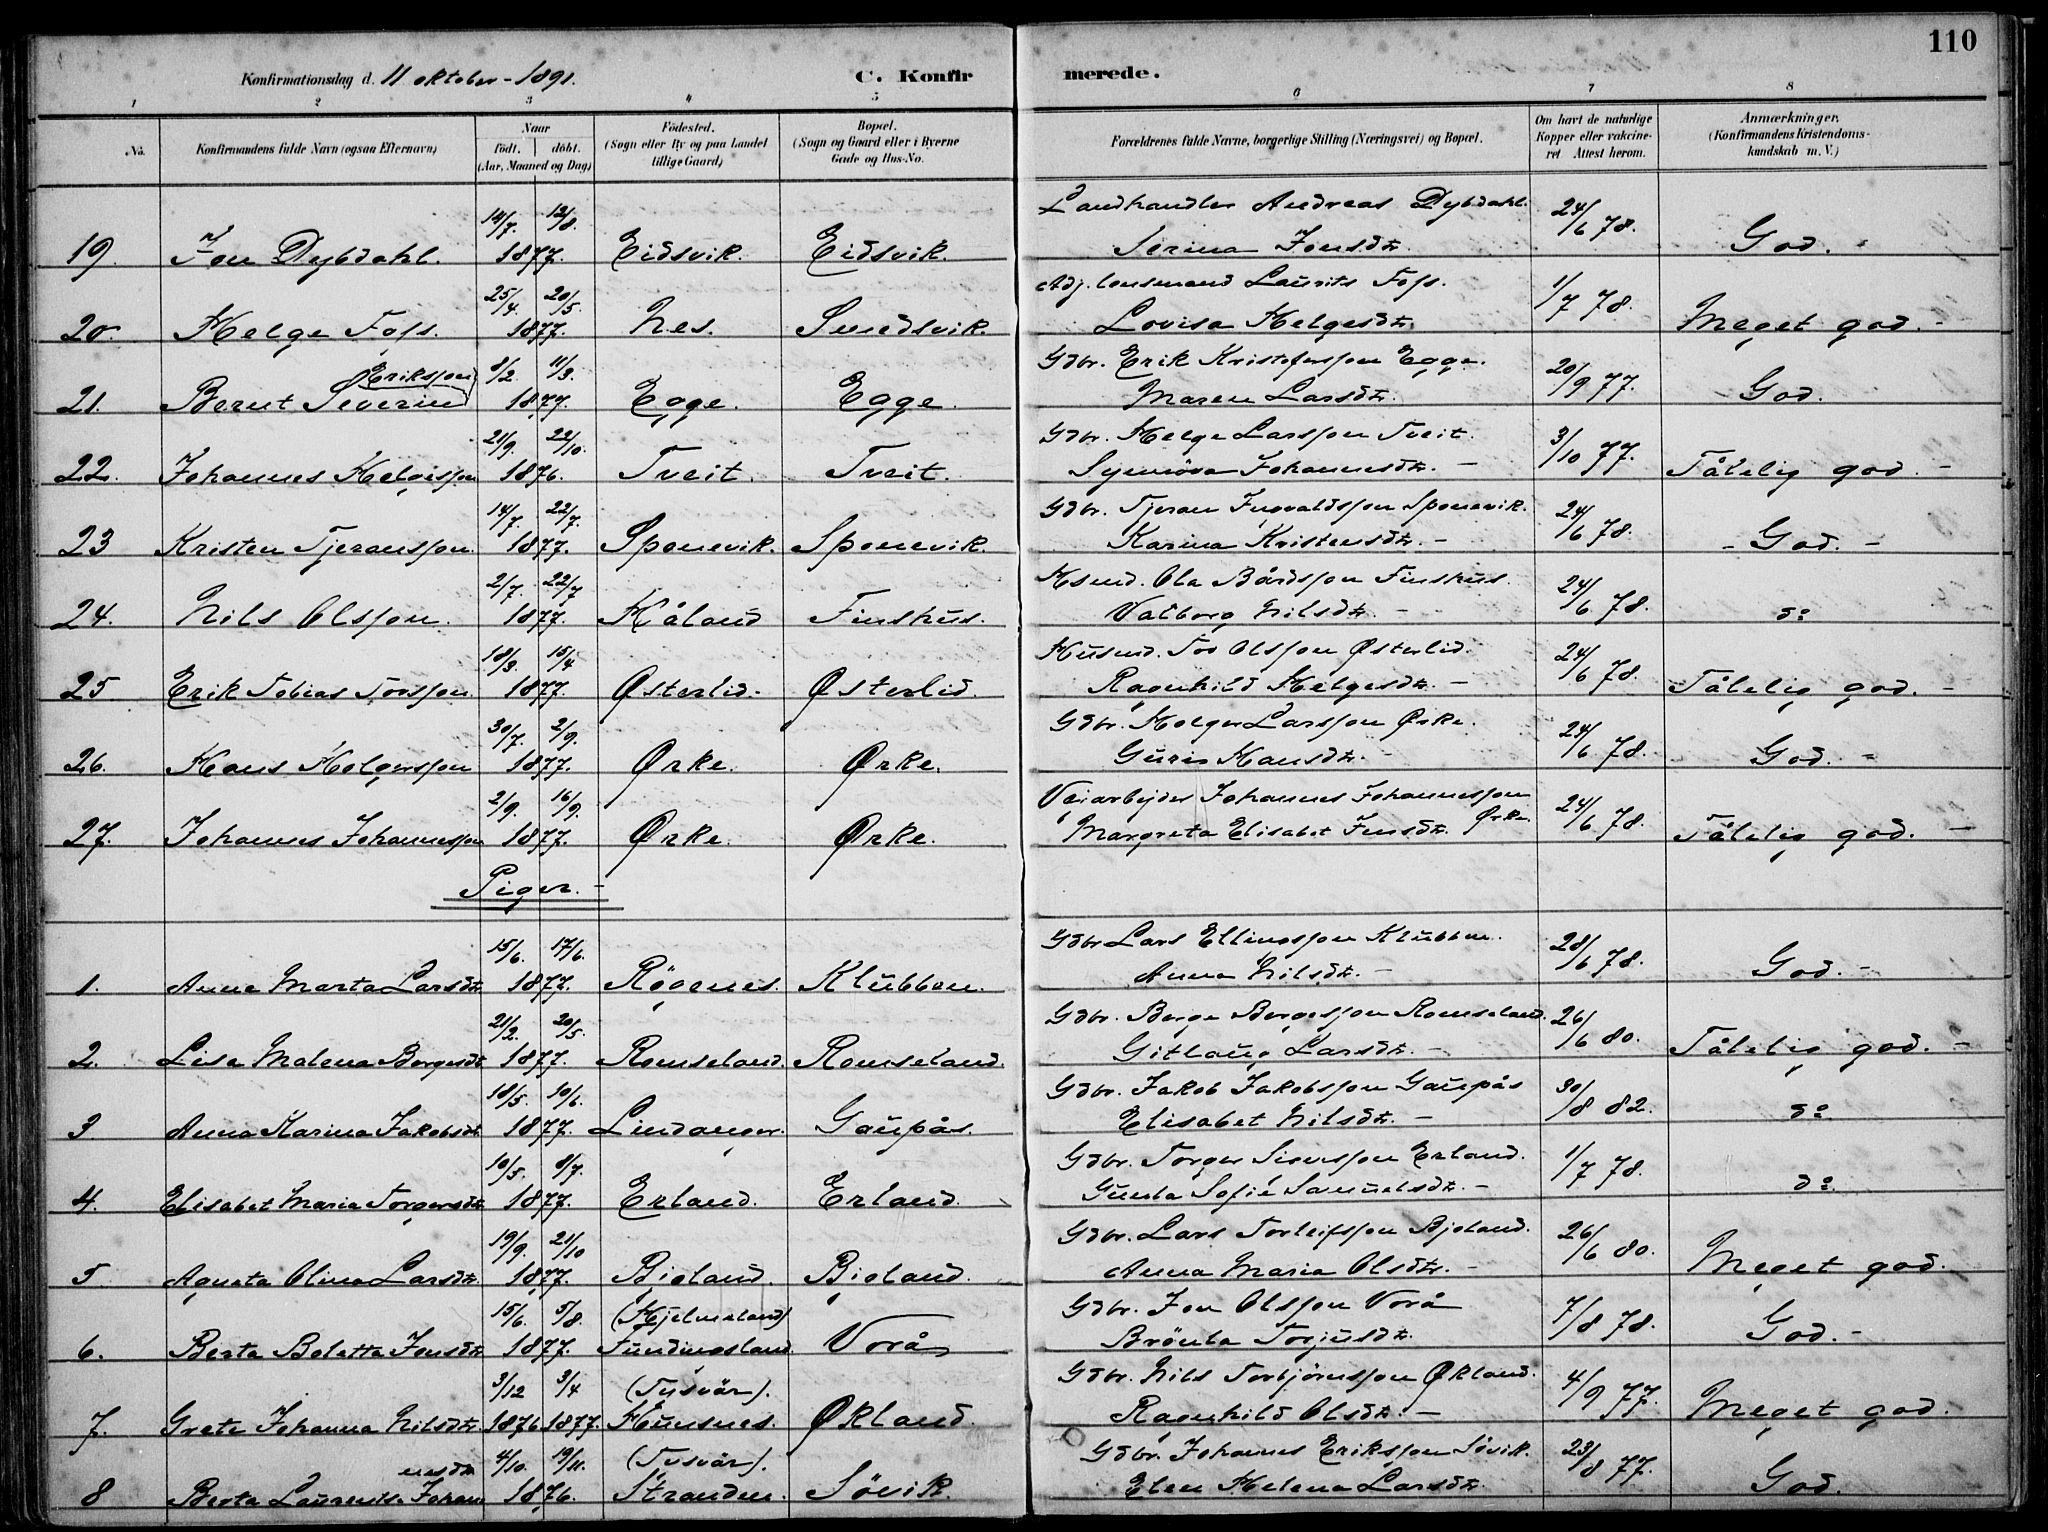 110
Konfirmationsdag d. 11 oktober - 1891.
C. Konfirmerede.
1 2 3 4 5 6 7 8
No. Konfirmandens fulde Navn (ogsaa Efternavn) Naar født. døbt. (Aar, Maaned og Dag) Fødested. (Sogn eller By og paa Landet tillige Gaard) Bopæl. (Sogn og Gaard eller i Byerne Gade og Hus-No. Forældrenes fulde Navne, borgerlige Stilling (Næringsvei) og Bopæl. Om havt de naturlige Kopper eller vakcineret Attest herom. Anmærkninger, (Konfirmandens Kristendomskundskab m. V.)
14/7. 12/8. Landhandler Andreas Dybdahl. 24/6 78.
19. Jon Dybdahl. 1877. Eidsvik. Eidsvik. Serina Jonsdtr. God. -
25/4. 20/5. Adj. lensmand Laurits Foss. 1/7 78.
20. Helge Foss. 1877. Nes. Sundsvik. Lovisa Helgesdtr. Meget god. -
Eriksson 8/2. 11/3. Gdbr. Erik Kristofersson Egge. 20/9 77.
21. Bernt Severin 1877. Egge. Egge. Maren Larsdtr. God.
21/9. 22/10. Gdbr. Helge Larsson Tveit. 3/10 77.
22. Johannes Helgesson 1876. Tveit. Tveit. Synnöva Johannesdtr. - Tålelig god. -
14/7. 22/7. Gdbr. Tjeran Ingvaldsson Sponevik. 24/6 78.
23 Kristen Tjeransson. 1877. Sponevik. Sponevik. Karina Kristensdtr. - - God. -
2/7. 22/7 Hsmd. Ola Bårdsson Finshus. 24/6 78.
24. Nils Olsson. 1877. Håland Finshus. Valborg Nilsdtr. - do
18/3. 15/4 Husmd. Tor Olsson Østerlid. 24/6 78.
25 Erik Tobias Torsson 1877. Østerlid. Østerlid. Ragnhild Helgesdtr. - Tålelig god. -
30/7. 2/9. Gdbr. Holger Larsson Ørke. 24/6 78.
26. Hans Holgersson 1877. Ørke. Ørke. Guri Hansdtr. - God. -
2/9. 16/9. Veiarbejder Johannes Johannesson 24/6 78.
27. Johannes Johannesson 1877. Ørke. Ørke. Margreta Elisabet Jensdtr. Ørke. Tålelig god. -
Piger. -
15/6. 17/6. Gdbr Lars Ellingsson Klubben. 28/6 78.
1. Anna Marta Larsdtr. 1877. Røgenes. Klubben. Anna Nilsdtr. - God. -
21/2. 20/5. Gdbr. Borge Borgesson Romseland. 26/6 80.
2. Lisa Malena Borgesdtr 1877. Romseland. Romseland. Gitlaug Larsdtr. - Tålelig god. -
18/5. 10/6. Gdbr. Jakob Jakobsson Gaupås 30/8 82.
3 Anna Karina Jakobsdtr. 1877. Lindanger. Gaupås. Elisabet Nilsdtr. - do
10/5. 8/7. Gdbr. Torger Siversson Erland. 1/7 78.
4. Elisabet Maria Torgersdtr 1877. Erland. Erland. Gunla Sofie Samuelsdtr. - do.
19/9. 21/10 Gdbr. Lars Torleifsson Bjoland. 26/6 80.
5 Agnata Olina Larsdtr. 1877. Bjoland. Bjoland. Anna Maria Olsdtr. - Meget god.
15/6. 5/8. (Hjelmeland) Gdbr. Jon Olsson Vorå 7/8 78.
6. Berta Boletta Jonsdtr 1877. Fundingsland Vorå Brönla Torjusdtr. God. -
3/12 3/4 (Tysvär). Gdbr. Nils Torbjörnsson Økland. 4/9 77.
7. Grete Johanna Nilsdtr. 1876 1877. Hunsnes. Økland. Ragnhild Olsdtr. - Meget god.
nesdtr. 4/10. 19/11. (Tysvär). Gdbr. Johannes Eriksson Sövik. 23/8 77.
8 Berta Laurentse Johan 1876. Stranden. Sövik. Elen Helena Larsdtr. God.